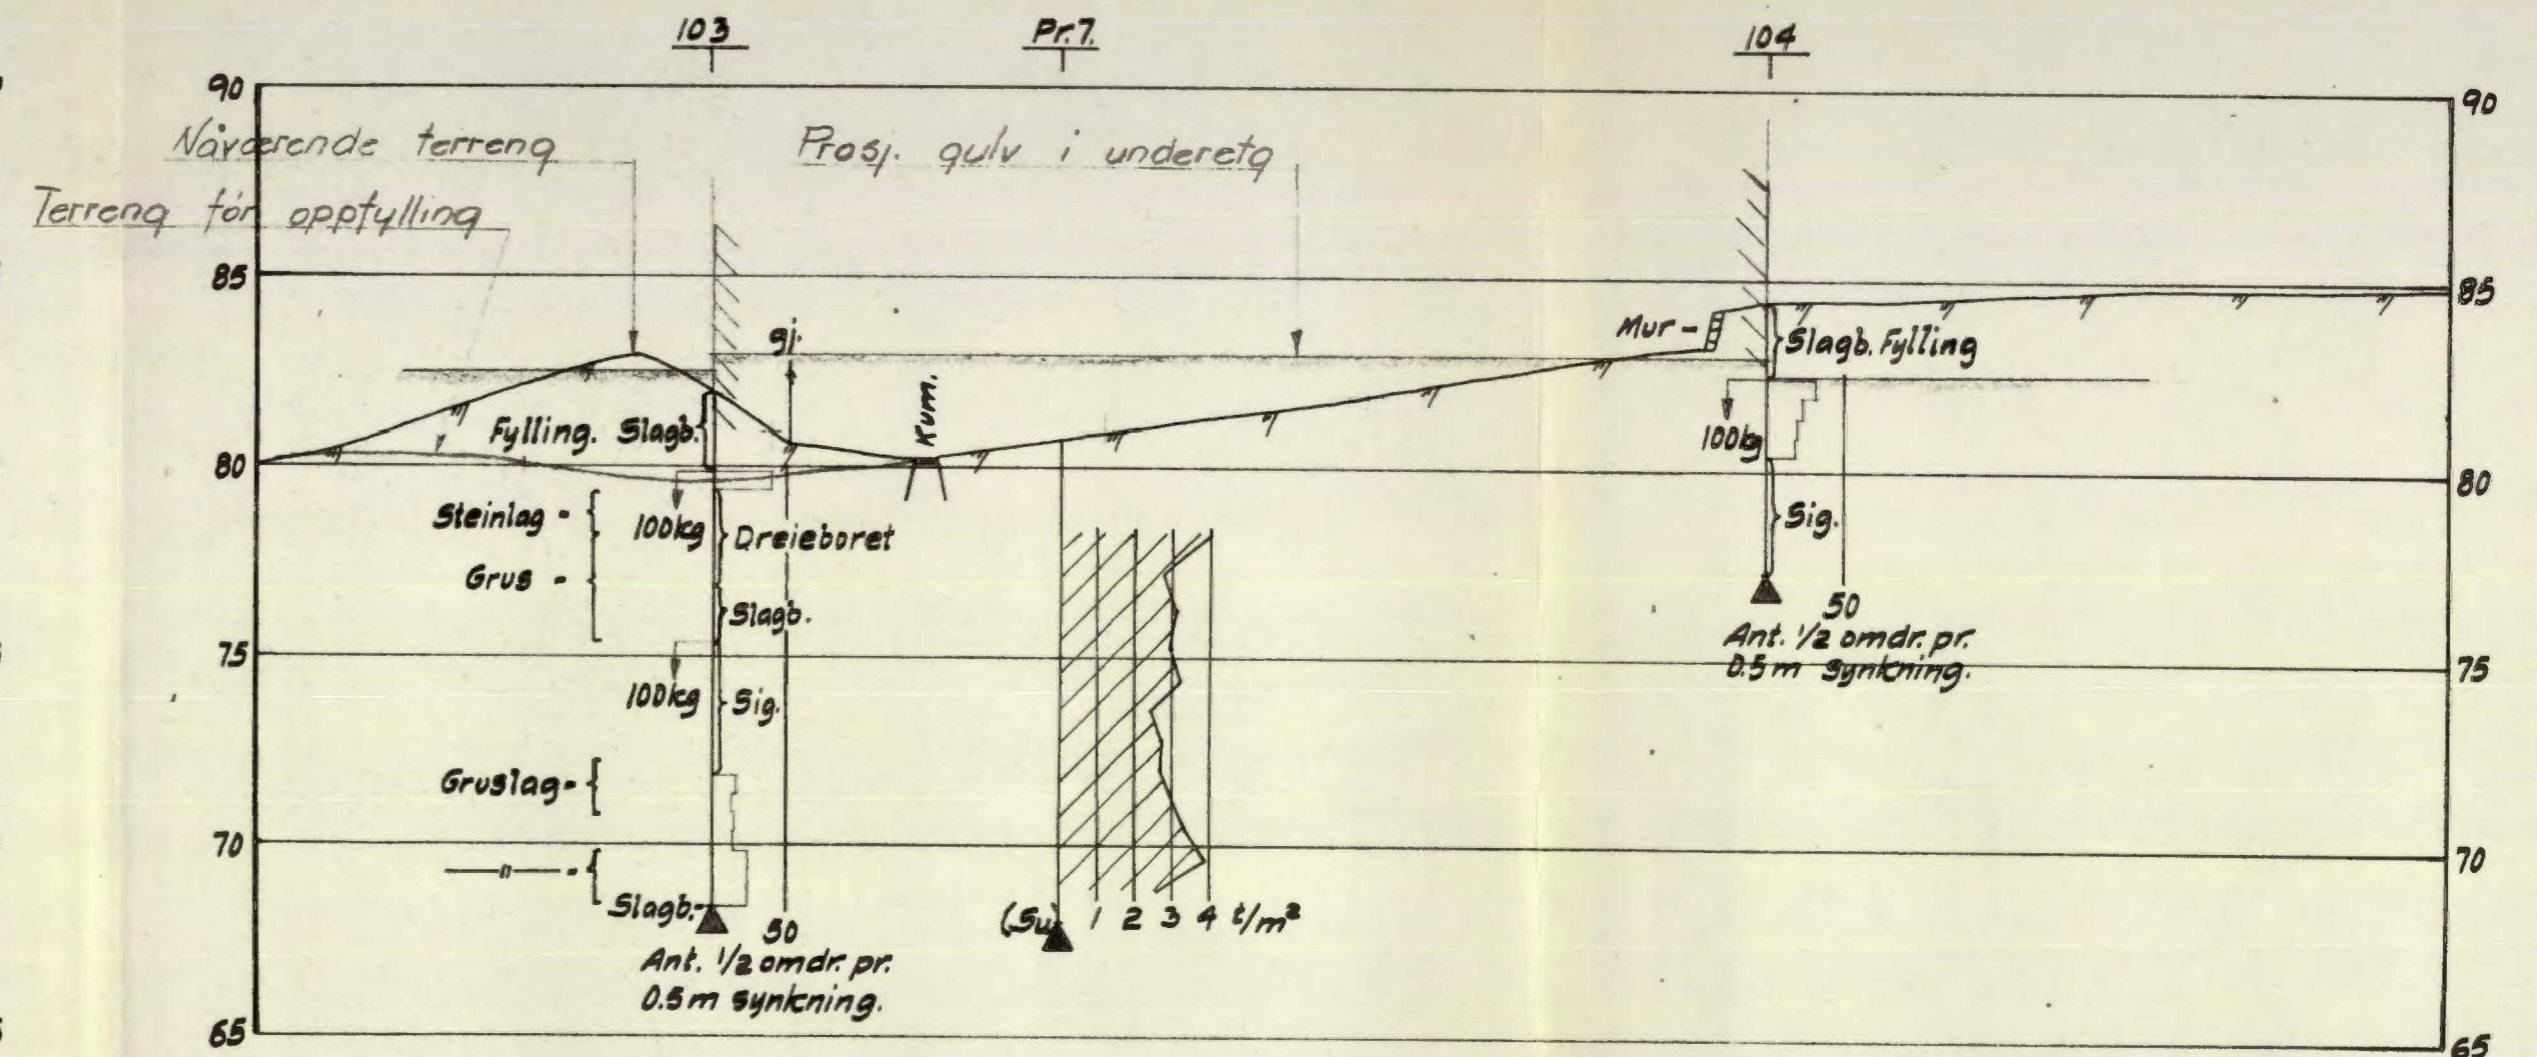 103
Pr.7.
104
90
90
Nåværende terreng
Prosj. gulv i underetg
Terreng før oppfylling
85
85
gj.
Mur -
Slagb. Fylling
Kum.
Fylling. Slagb.
100kg
80
80
Steinlag -
100kg
Dreieboret
Sig.
Grus -
50
Slagb.
Ant. 1/2 omdr. pr.
0.5m synkning.
75
75
100kg
Sig.
Gruslag -
70
70
—"— -
Slagb. -
(Su)
1 2 3 4 t/m²
50
Ant. 1/2 omdr. pr.
0.5m synkning.
65
65